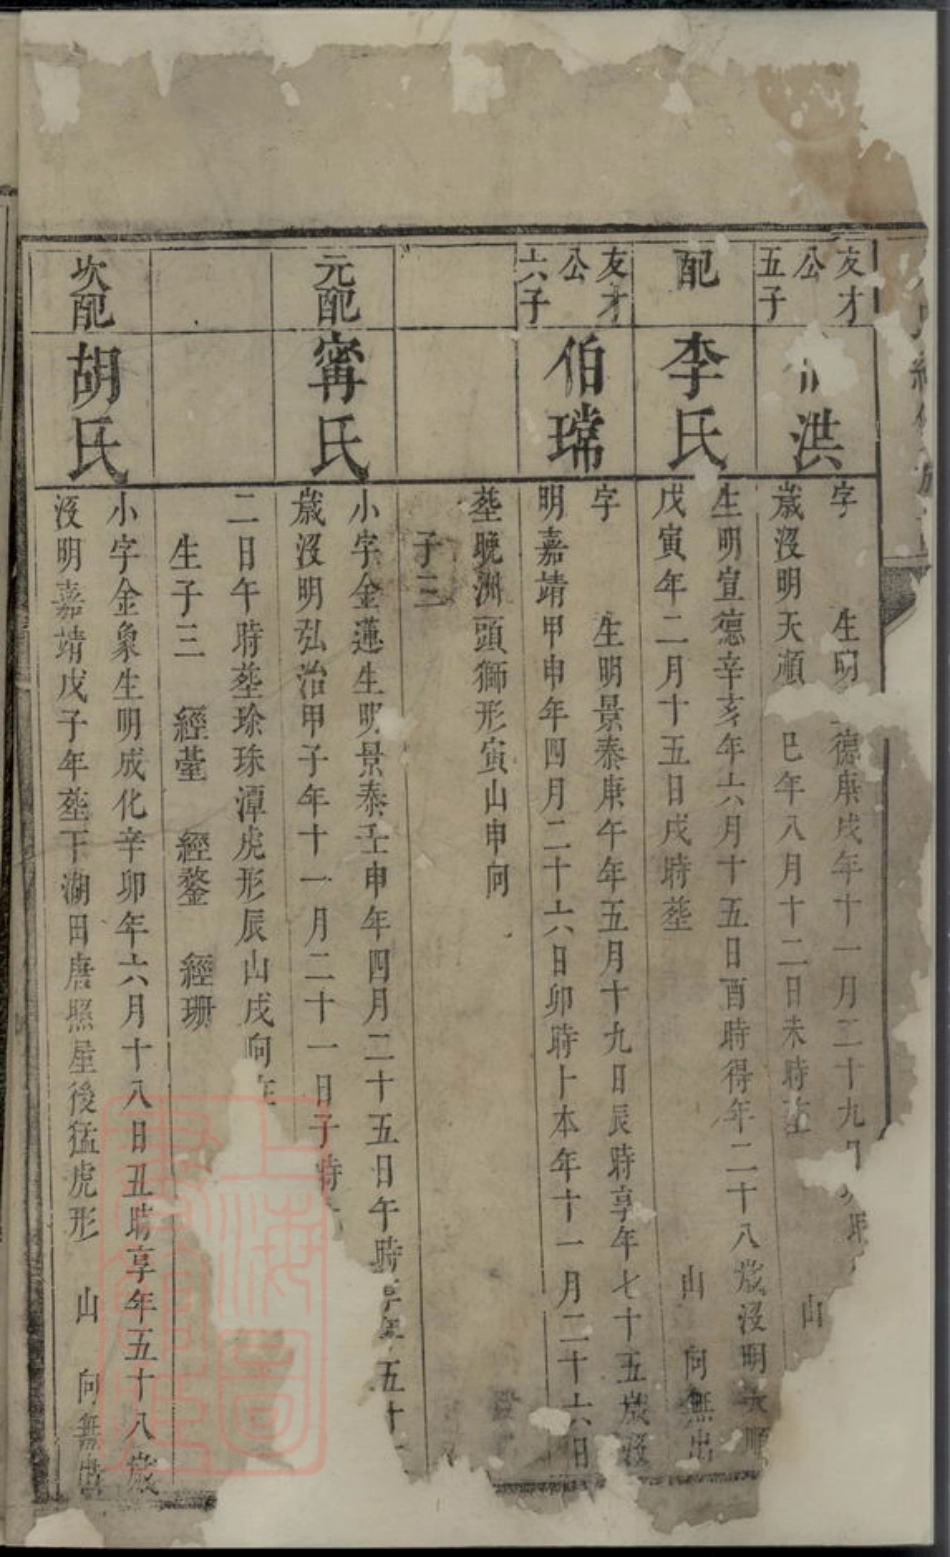 友才公五子
洪
字 生明 德庚戌年十一月二十九
歲沒明天順 巳年八月十二日未時塟 山
配
李氏
生明宣德辛亥年六月十五日酉時得年二十八歲沒明天順
戊寅年二月十五日戌時塟 山 向無出
友才公六子
伯瑺
字 生明景泰庚午年五月十九日辰時享年七十五歲沒
明嘉靖甲申年四月二十六日卯時卜本年十一月二十六日
塟曉洲頭獅形寅山申向
子三
元配
甯氏
小字金蓮生明景泰壬申年四月二十五日午時享年五十
歲沒明弘治甲子年十一月二十一日子時
二日午時塟珍珠潭虎形辰山戌向
生子三 經䕒 經鍪 經珊
次配
胡氏
小字金象生明成化辛卯年六月十八日丑時享年五十八歲
沒明嘉靖戊子年塟下湖田唐照星後猛虎形 山 向無出
上海圖書館藏